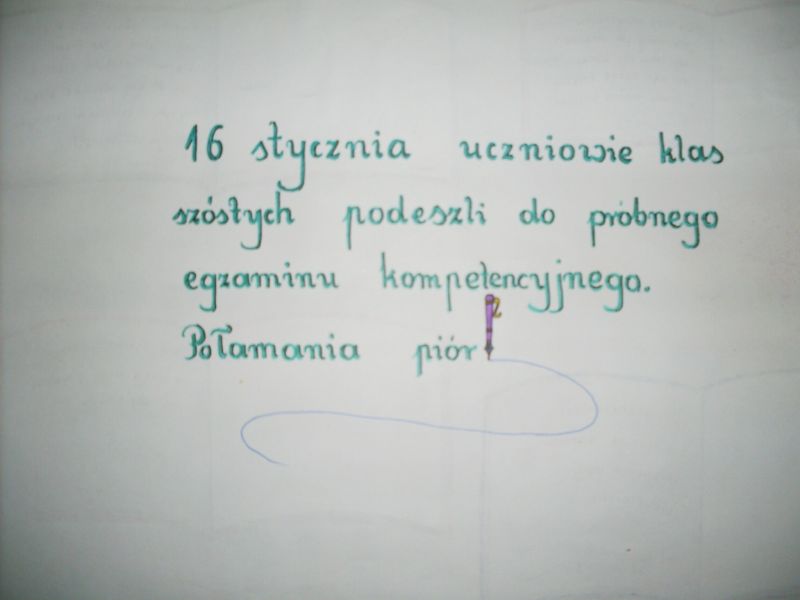 16 stycznia uczniowie klas
szóstych podeszli do próbnego
egzaminu kompetencyjnego.
Połamania piór